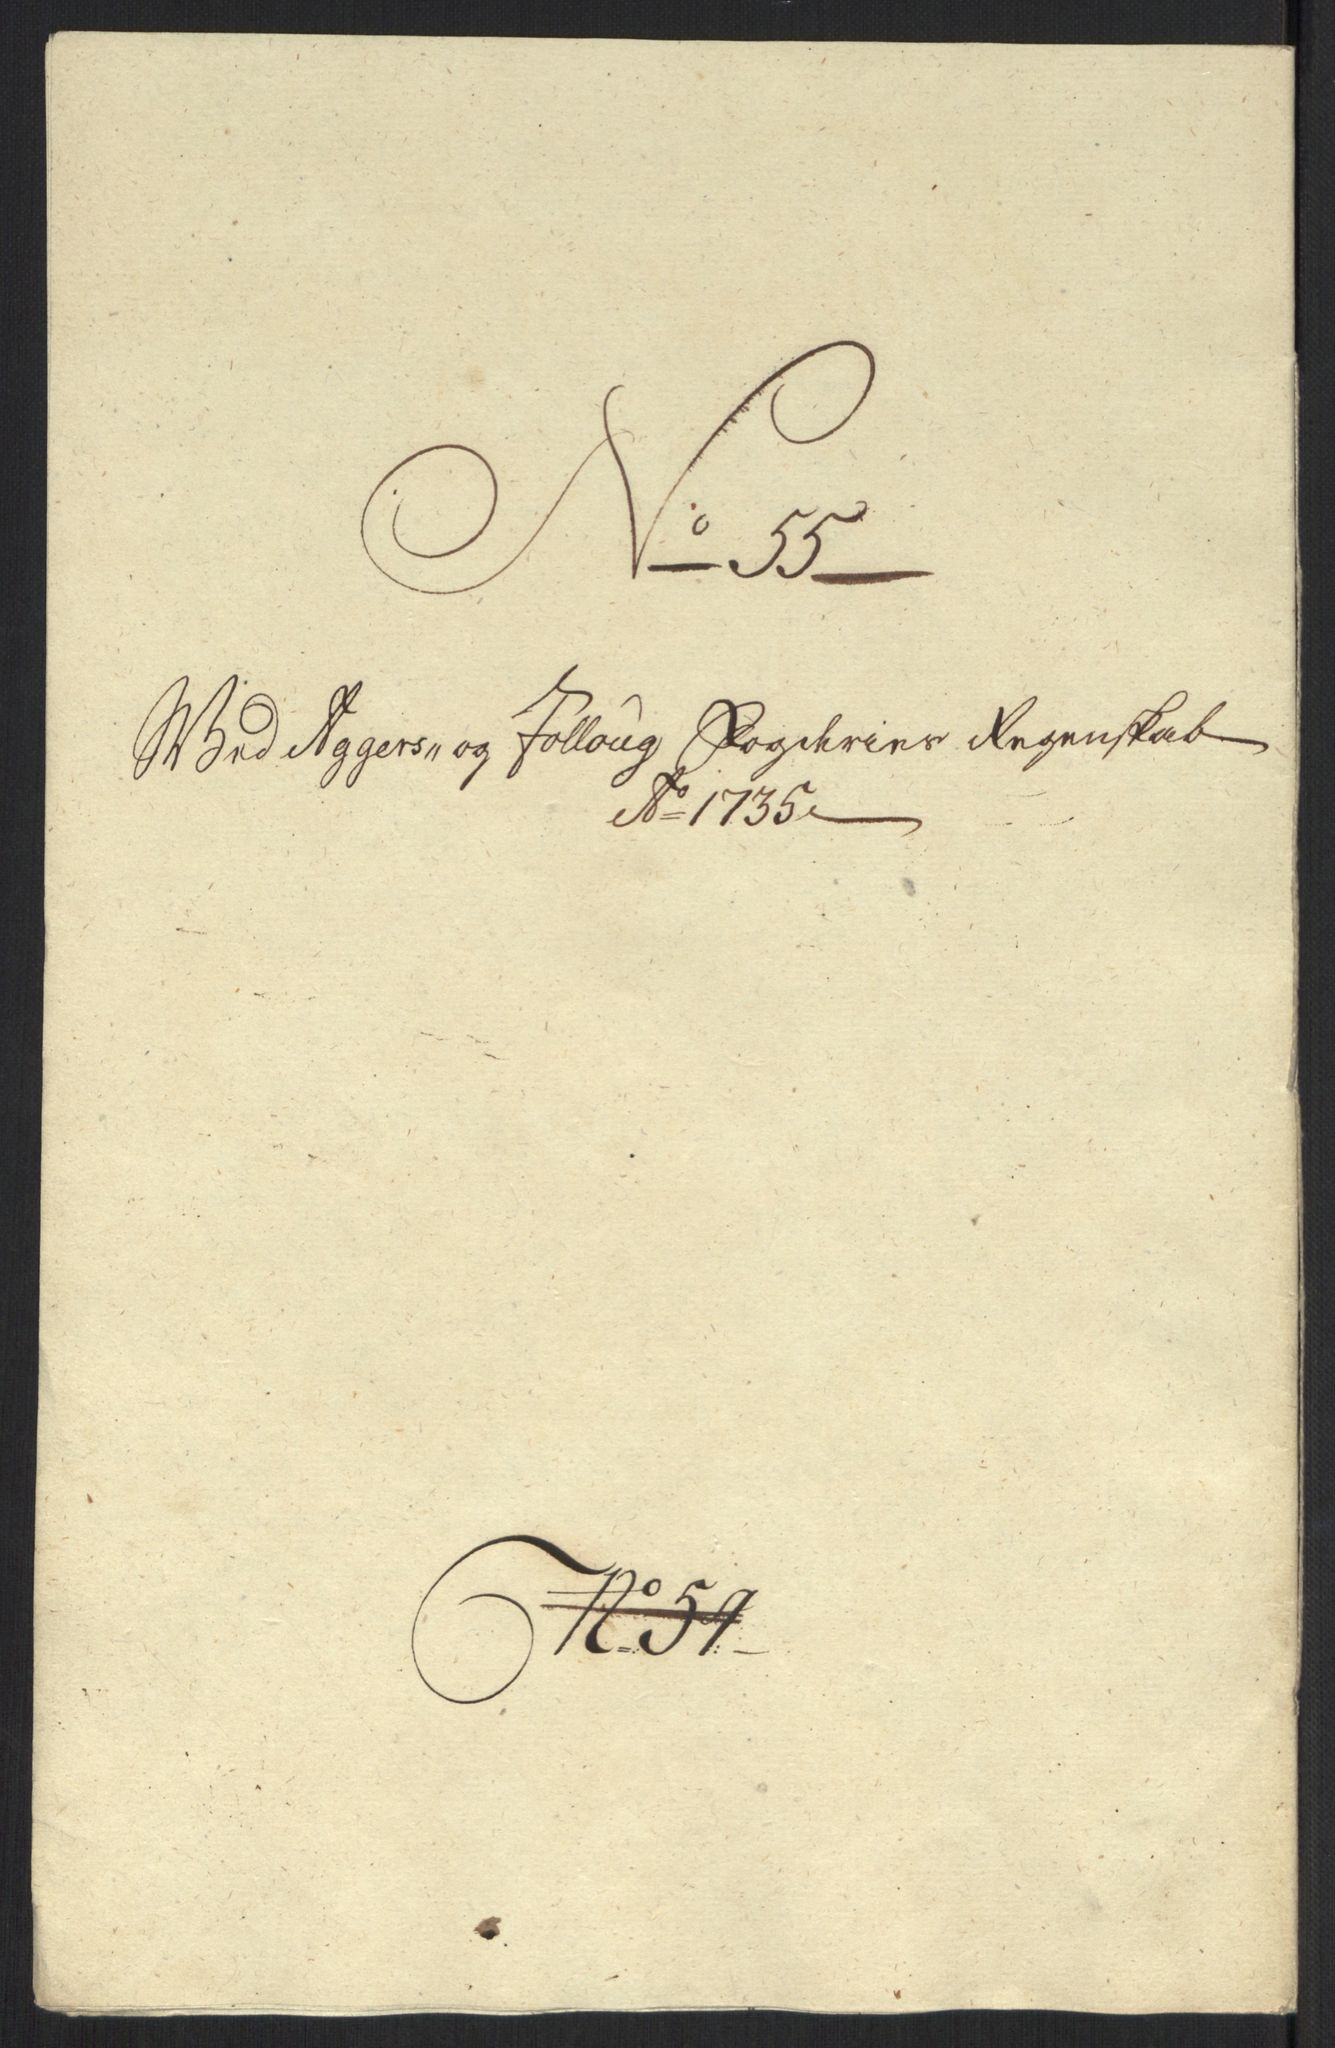 No 55
Wed Aggers,, og Folloug Fogderies Regenskab
Ao 1735
No 54